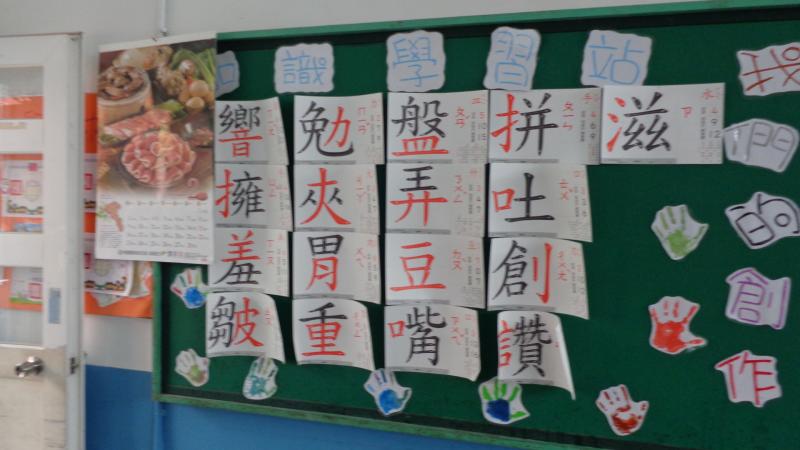 知識學習站
我們的創作
響勉盤拼滋
擁夾弄吐
羞胃豆創
皺重嘴讚